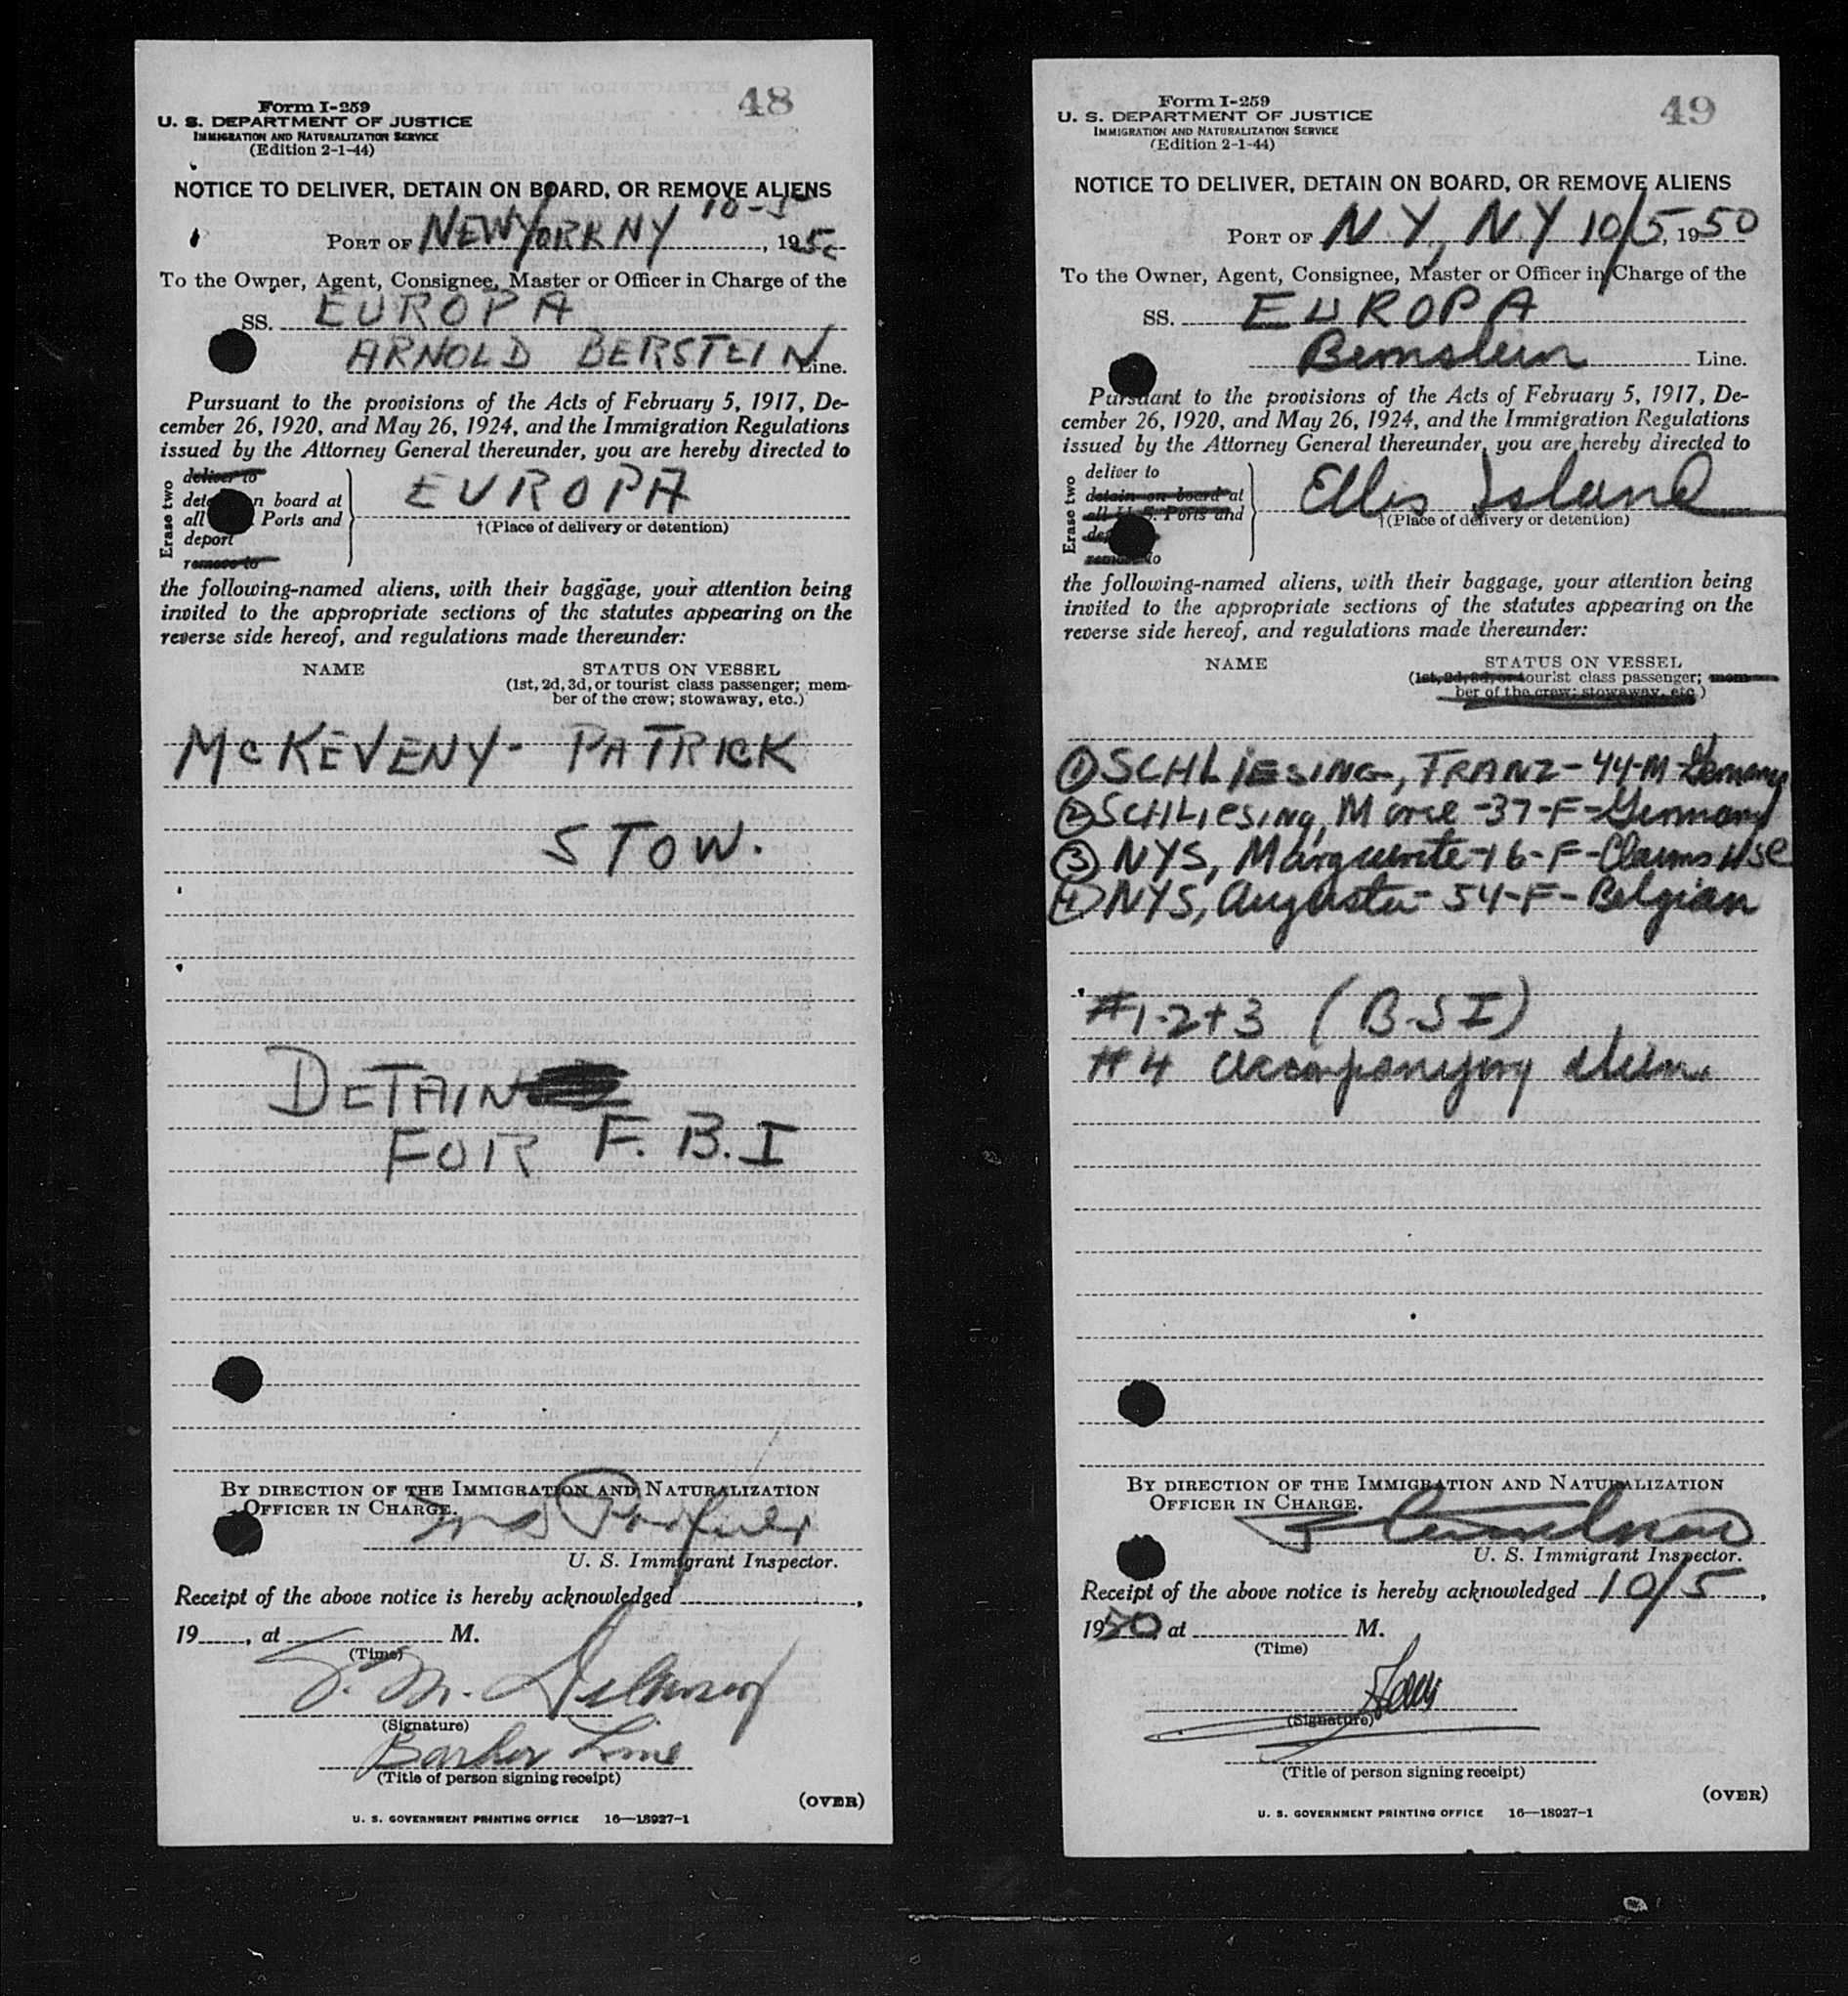 48
Form I-259
U. S. DEPARTMENT OF JUSTICE
IMMIGRATION AND NATURALIZATION SERVICE
(Edition 2-1-44)
NOTICE TO DELIVER, DETAIN ON BOARD, OR REMOVE ALIENS
10-5
PORT OF NEW YORK NY, 195
To the Owner, Agent, Consignee, Master or Officer in Charge of the
SS. EUROPA
ARNOLD BERSTEIN Line.
Pursuant to the provisions of the Acts of February 5, 1917, De-
cember 26, 1920, and May 26, 1924, and the Immigration Regulations
issued by the Attorney General thereunder, you are hereby directed to
Erase two
deliver to
n board at
all Ports and
deport
remove to
EUROPA
†(Place of delivery or detention)
the following-named aliens, with their baggage, your attention being
invited to the appropriate sections of the statutes appearing on the
reverse side hereof, and regulations made thereunder:
NAME STATUS ON VESSEL
(1st, 2d, 3d, or tourist class passenger; mem-
ber of the crew; stowaway, etc.)
McKEVENY - PATRICK
STOW.
DETAIN
FOR F. B. I
BY DIRECTION OF THE IMMIGRATION AND NATURALIZATION
OFFICER IN CHARGE.
U. S. Immigrant Inspector.
Receipt of the above notice is hereby acknowledged
19, at M.
(Time)
(Signature)
Barber Line
(Title of person signing receipt)
(OVER)
U. S. GOVERNMENT PRINTING OFFICE 16—18927-1
49
Form I-259
U. S. DEPARTMENT OF JUSTICE
IMMIGRATION AND NATURALIZATION SERVICE
(Edition 2-1-44)
NOTICE TO DELIVER, DETAIN ON BOARD, OR REMOVE ALIENS
PORT OF N.Y, N.Y 10/5, 1950
To the Owner, Agent, Consignee, Master or Officer in Charge of the
SS. EUROPA
Bernstein Line.
Pursuant to the provisions of the Acts of February 5, 1917, De-
cember 26, 1920, and May 26, 1924, and the Immigration Regulations
issued by the Attorney General thereunder, you are hereby directed to
Erase two
deliver to
detain on board at
all U. S. Ports and
remove to
Ellis Island
†(Place of delivery or detention)
the following-named aliens, with their baggage, your attention being
invited to the appropriate sections of the statutes appearing on the
reverse side hereof, and regulations made thereunder:
NAME STATUS ON VESSEL
(1st, 2d, 3d, or tourist class passenger; mem-
ber of the crew; stowaway, etc.)
① SCHLIESING, TRANZ - 44-M-Germany
② SCHLIESING, - 37-F-Germany
③ NYS, Marguerite - 16-F-Claims USC
④ NYS, Augusta - 54-F-Belgian
#1-2+3 (B.S.I)
#4 accompanying alien.
BY DIRECTION OF THE IMMIGRATION AND NATURALIZATION
OFFICER IN CHARGE.
U. S. Immigrant Inspector.
Receipt of the above notice is hereby acknowledged 10/5,
1950 at M.
(Time)
(Signature)
(Title of person signing receipt)
(OVER)
U. S. GOVERNMENT PRINTING OFFICE 16—18927-1